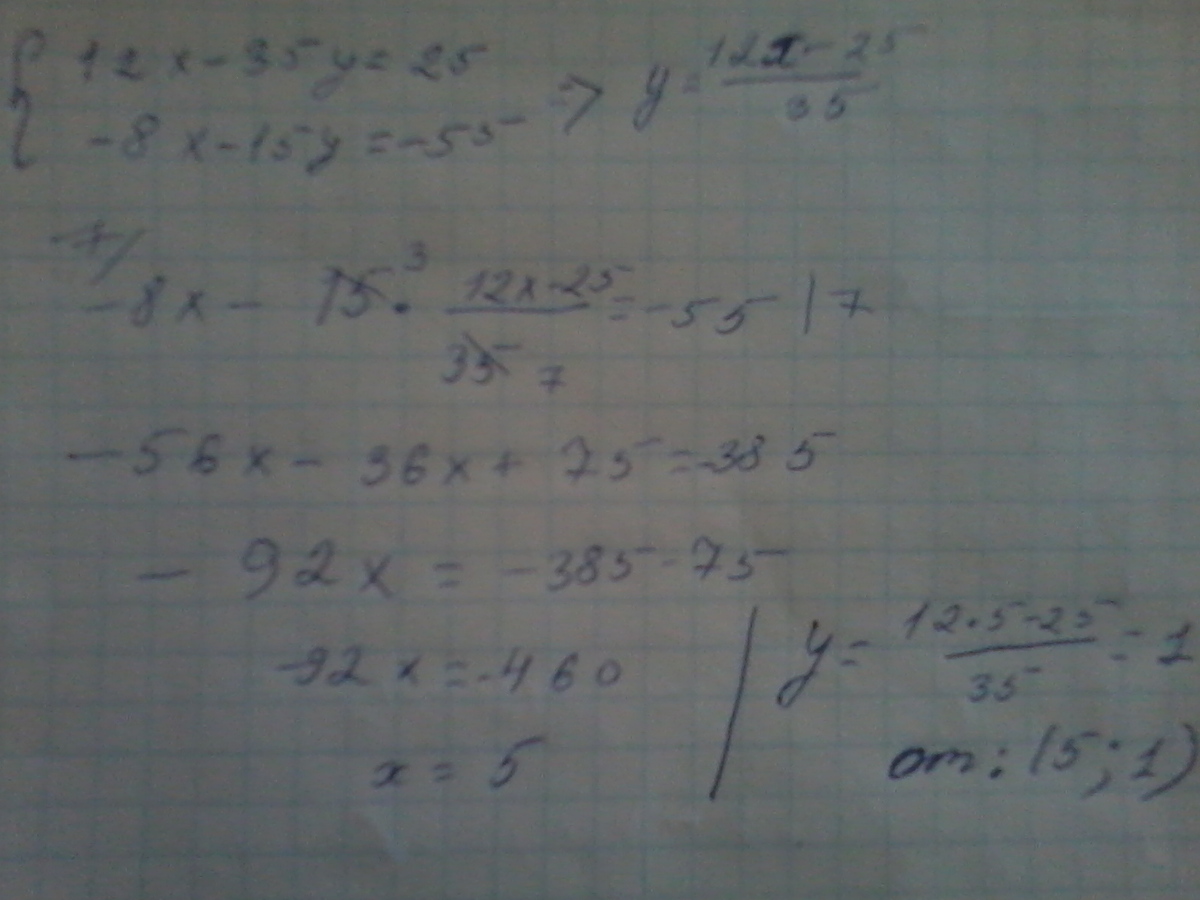 { 12x - 35y = 25
-8x - 15y = -55 => y = (12x - 25)/35
-8x - 15³ · (12x - 25)/35 7 = -55 | 7
-56x - 36x + 75 = -385
- 92x = -385 - 75
-92x = -460
x = 5
y = (12·5 - 25)/35 = 1
от: (5; 1)